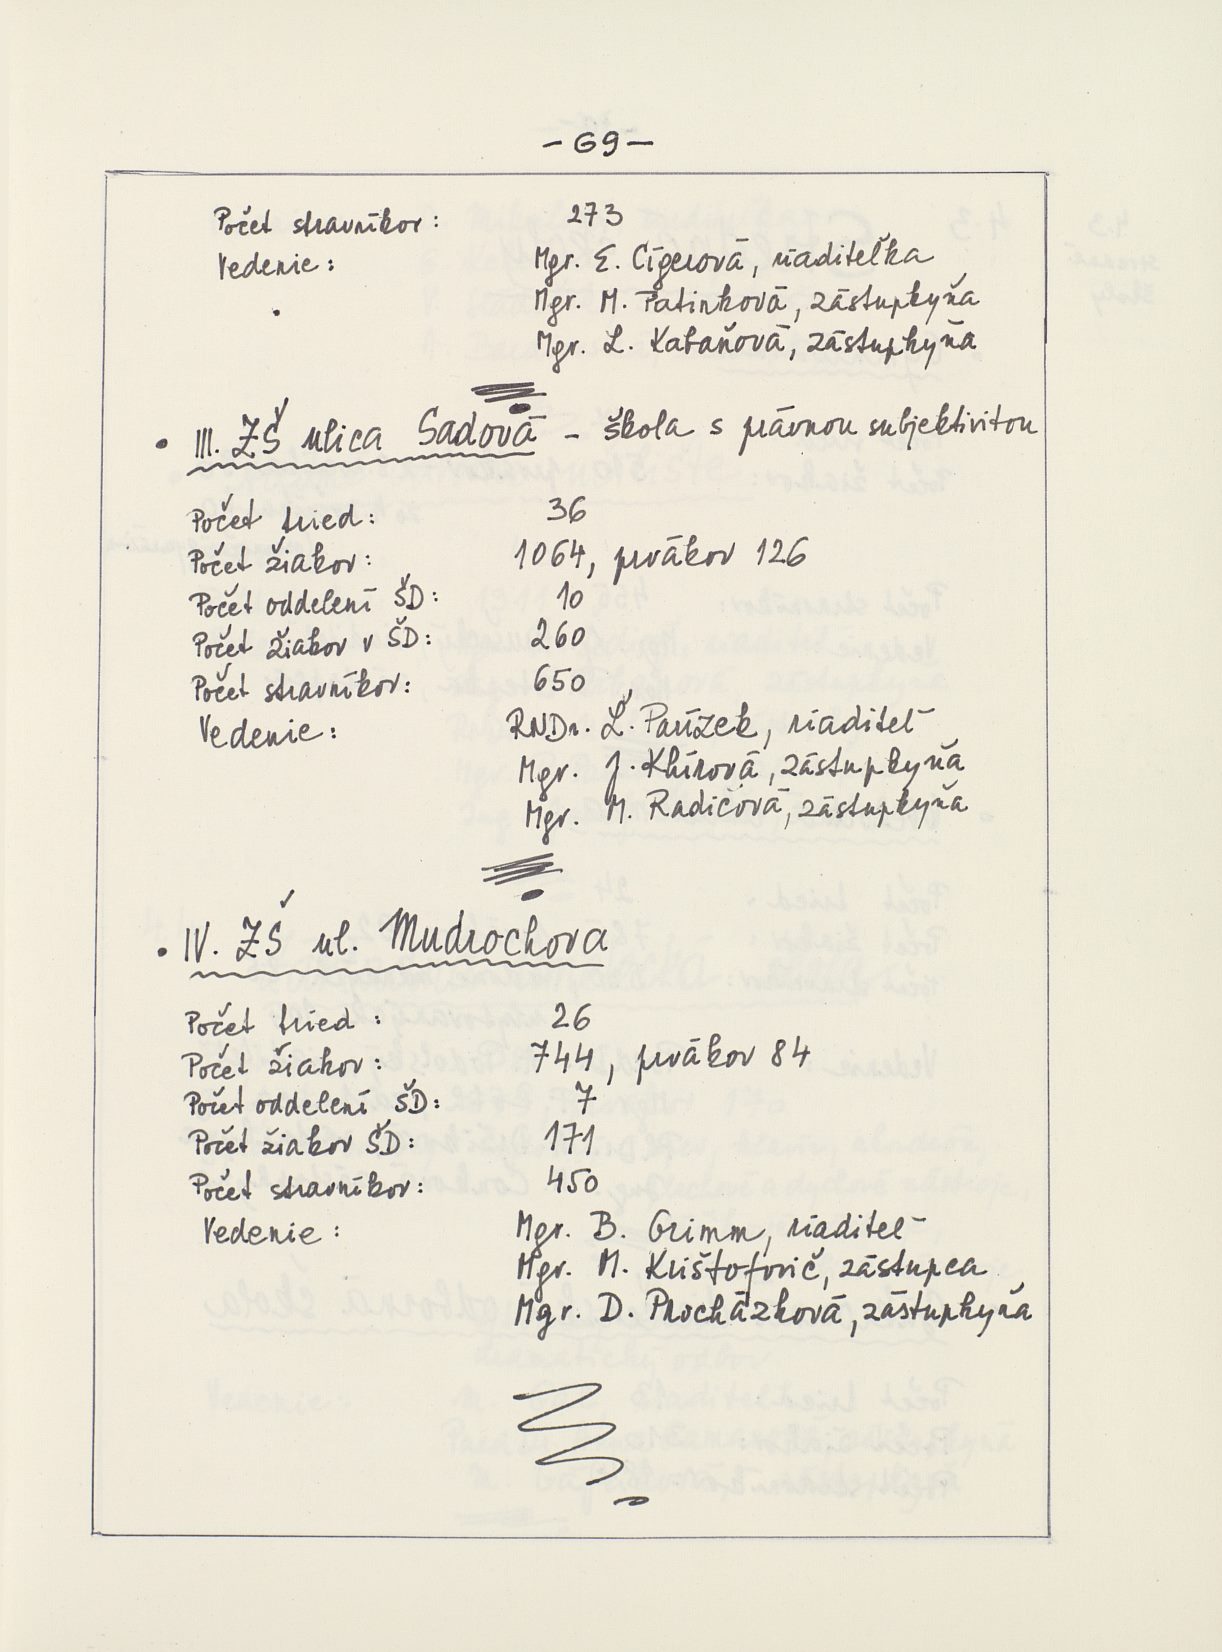 - 69 -
Počet stravníkov: 273
Vedenie: Mgr. E. Cígerová, riaditeľka
Mgr. M. Patinková, zástupkyňa
Mgr. Ľ. Kabaňová, zástupkyňa
• III. ZŠ ulica Sadová - škola s právnou subjektivitou
Počet tried: 36
Počet žiakov: 1064, prvákov 126
Počet oddelení ŠD: 10
Počet žiakov v ŠD: 260
Počet stravníkov: 650
Vedenie: RNDr. Ľ. Parízek, riaditeľ
Mgr. J. Khírová, zástupkyňa
Mgr. M. Radičová, zástupkyňa
• IV. ZŠ ul. Mudrochova
Počet tried: 26
Počet žiakov: 744, prvákov 84
Počet oddelení ŠD: 7
Počet žiakov ŠD: 171
Počet stravníkov: 450
Vedenie: Mgr. B. Grimm, riaditeľ
Mgr. M. Krištofovič, zástupca
Mgr. D. Procházková, zástupkyňa